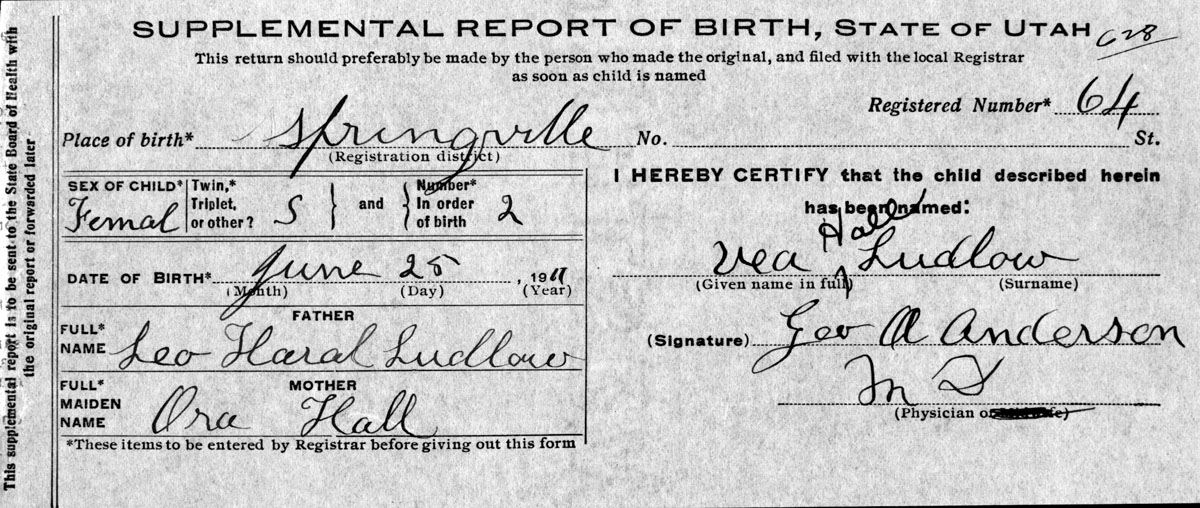 SUPPLEMENTAL REPORT OF BIRTH, STATE OF UTAH 628
This return should preferably be made by the person who made the original, and filed with the local Registrar
as soon as child is named
Registered Number* 64
Place of birth* Springville No. St.
(Registration district)
SEX OF CHILD* Femal
Twin,* Triplet, or other? S } and { Number* In order of birth 2
DATE OF BIRTH* June 25, 1911
(Month) (Day) (Year)
FATHER
FULL* NAME Leo Haral Ludlow
MOTHER
FULL* MAIDEN NAME Ora Hall
*These items to be entered by Registrar before giving out this form
I HEREBY CERTIFY that the child described herein
has been named:
Hall
Vea Ludlow
(Given name in full) (Surname)
(Signature) Geo A Anderson
M D
(Physician o
This supplemental report is to be sent to the State Board of Health with
the original report or forwarded later